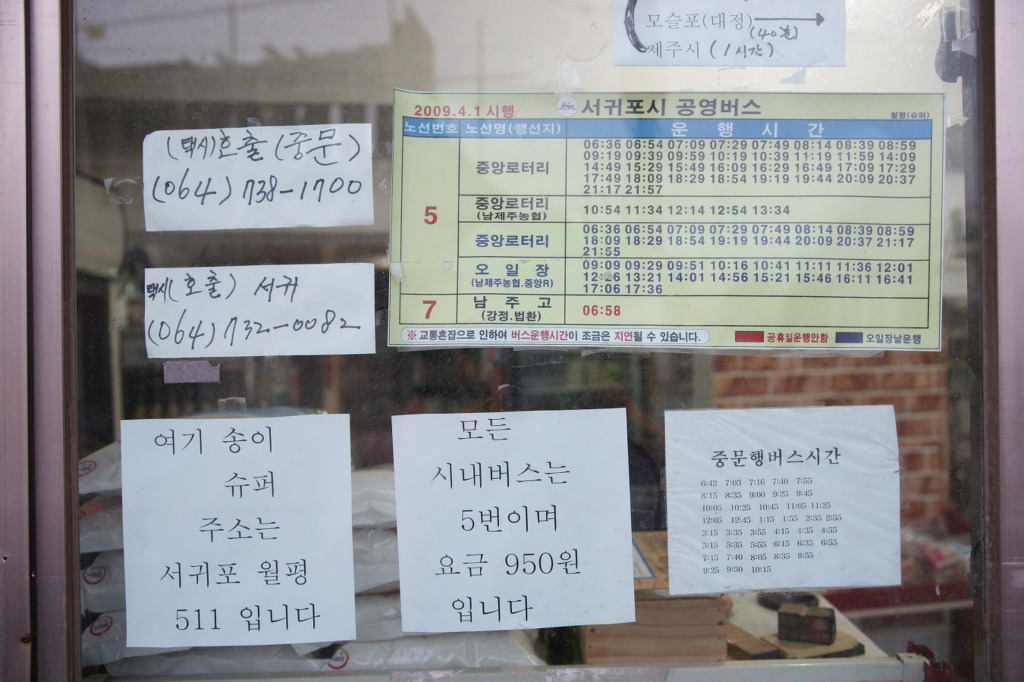 모슬포(대정)
(40분)
제주시 (1시간)
(택시)호출(중문)
(064) 738-1700
택시(호출) 서귀
(064) 732-0082
2009.4.1 시행
서귀포시 공영버스
월평(슈퍼)
노선번호 노선명(행선지) 운행시간
5
중앙로터리
06:36 06:54 07:09 07:29 07:49 08:14 08:39 08:59
09:19 09:39 09:59 10:19 10:39 11:19 11:59 14:09
14:49 15:29 15:49 16:09 16:29 16:49 17:09 17:29
17:49 18:09 18:29 18:54 19:19 19:44 20:09 20:37
21:17 21:57
중앙로터리
(남제주농협)
10:54 11:34 12:14 12:54 13:34
중앙로터리
06:36 06:54 07:09 07:29 07:49 08:14 08:39 08:59
18:09 18:29 18:54 19:19 19:44 20:09 20:37 21:17
21:55
오일장
(남제주농협.중앙R)
09:09 09:29 09:51 10:16 10:41 11:11 11:36 12:01
13:21 14:01 14:56 15:21 15:46 16:11 16:41
17:06 17:36
7
남주고
(강정.법환)
06:58
※ 교통혼잡으로 인하여 버스운행시간이 조금은 지연될 수 있습니다.
공휴일운행안함
오일장날운행
여기 송이
슈퍼
주소는
서귀포 월평
511 입니다
모든
시내버스는
5번이며
요금 950원
입니다
중문행버스시간
6:42 7:03 7:16 7:40 7:55
8:15 8:35 9:00 9:25 9:45
10:05 10:25 10:45 11:05 11:25
12:05 12:45 1:15 1:55 2:35 2:55
3:15 3:35 3:55 4:15 4:35 4:55
5:15 5:35 5:55 6:15 6:35 6:55
7:15 7:40 8:05 8:35 8:55
9:25 9:50 10:15